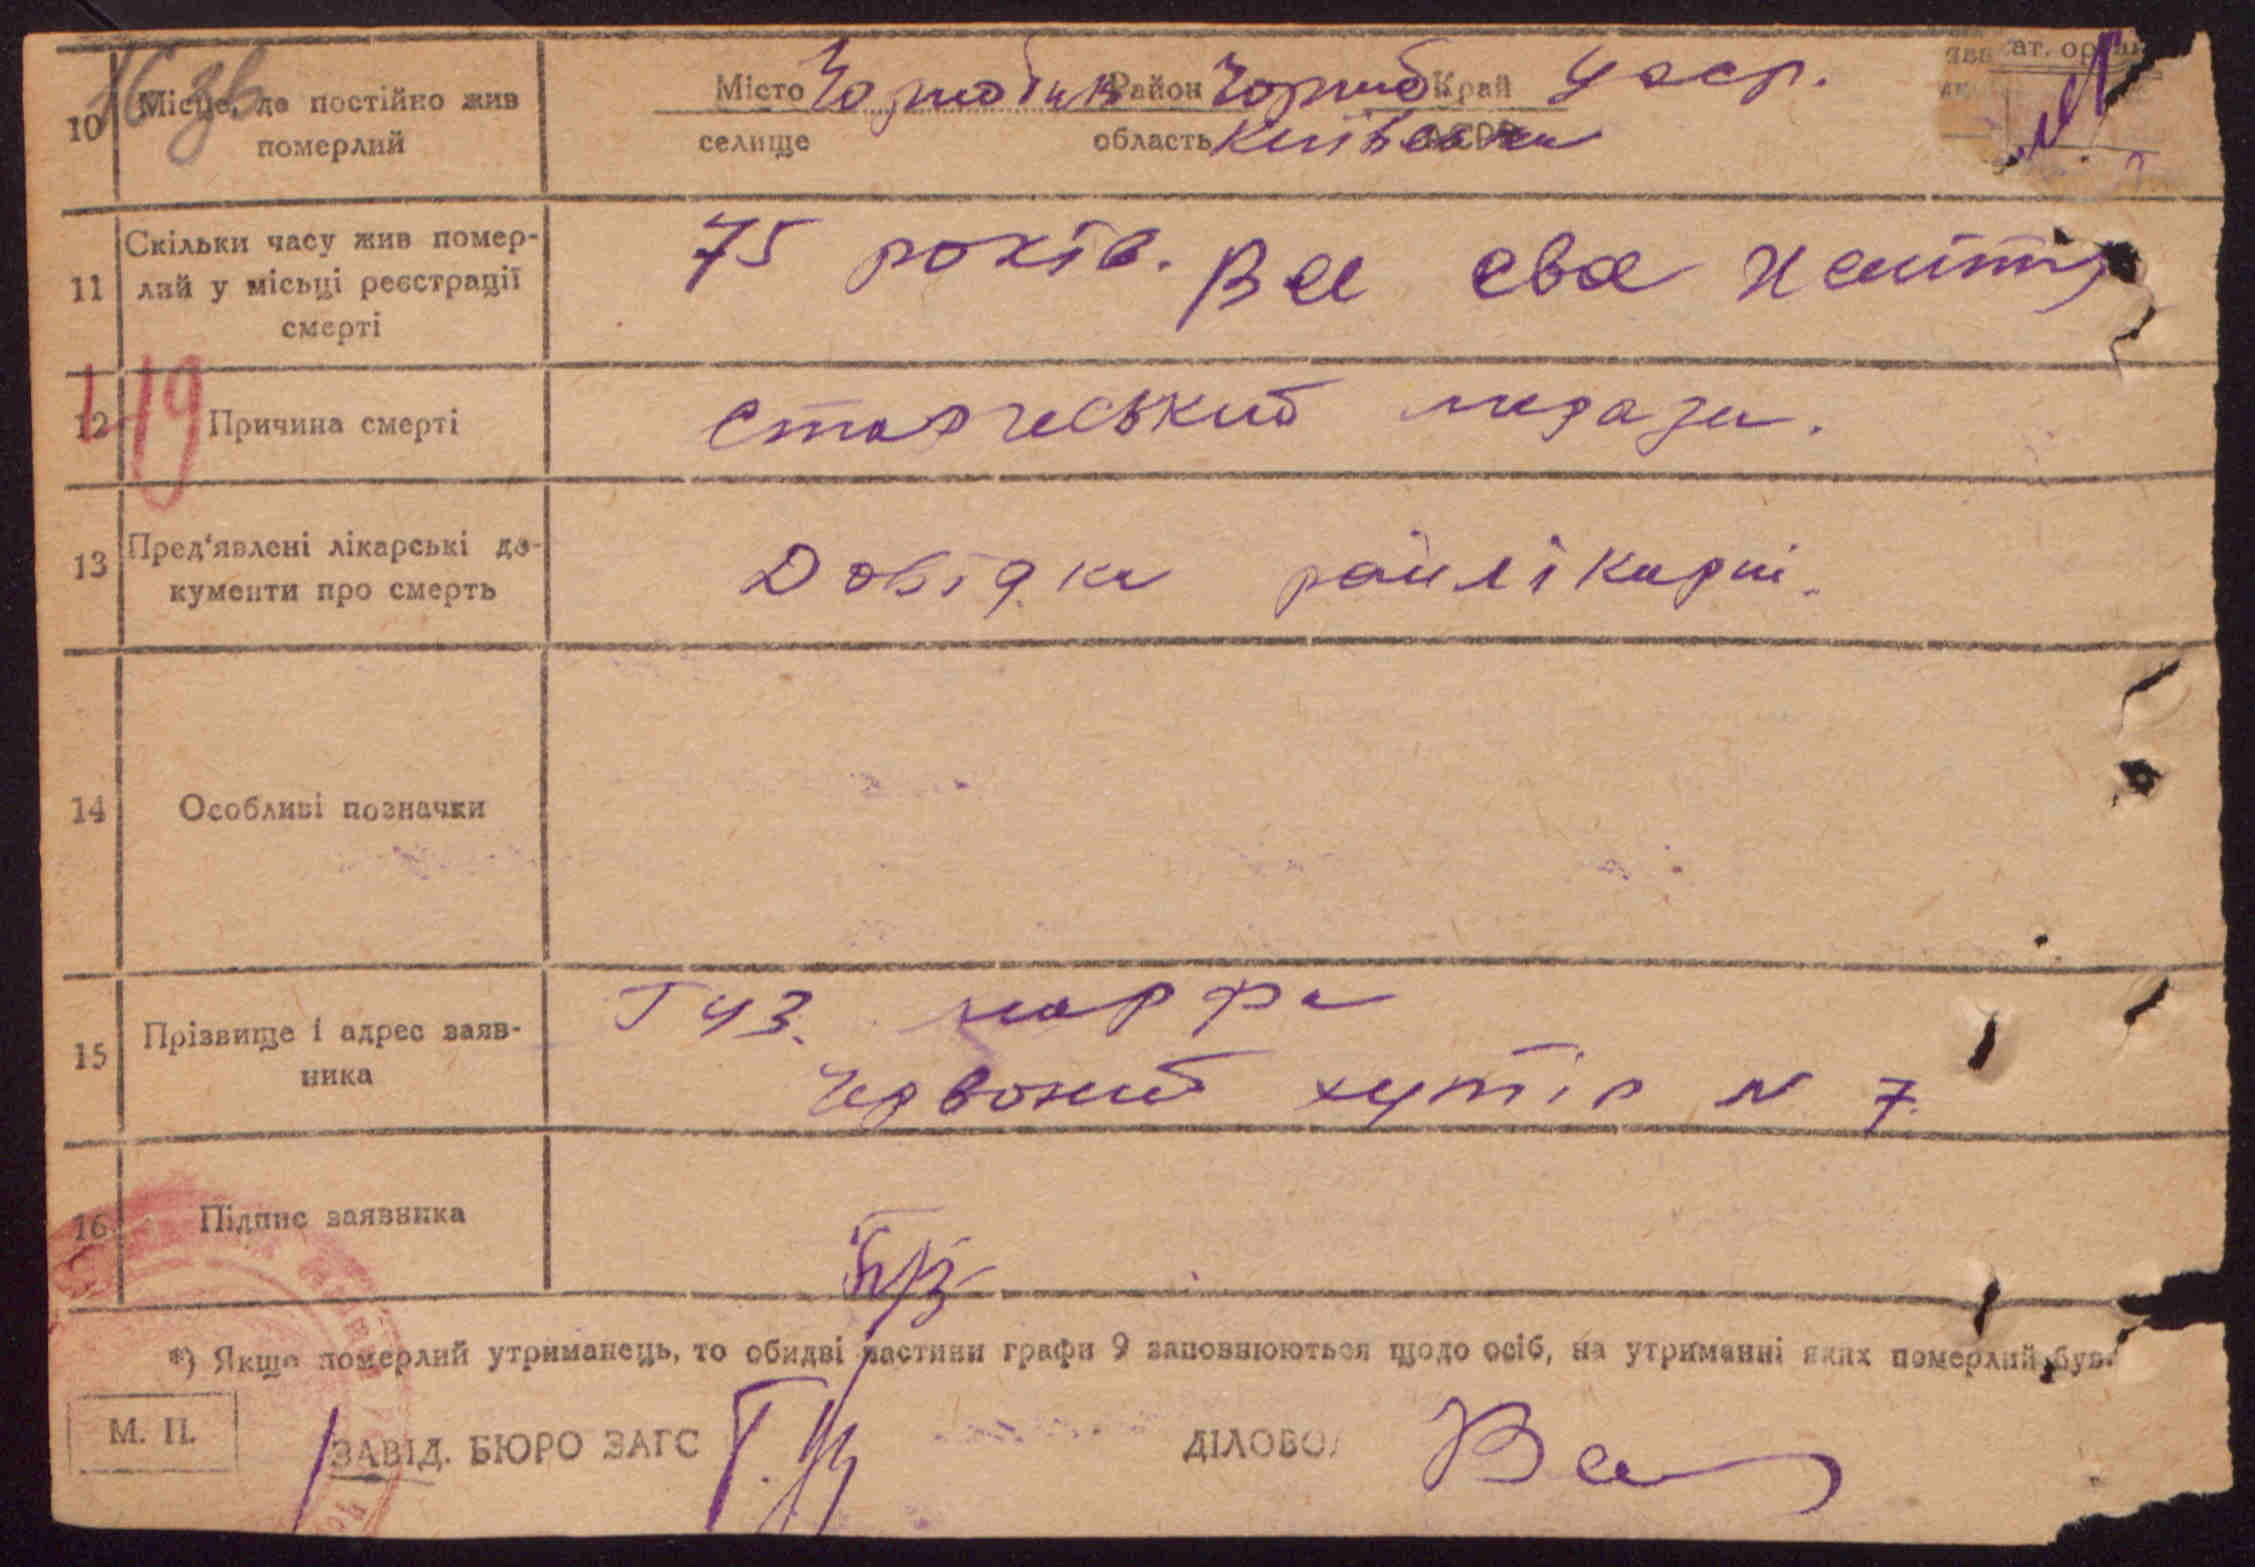 10 Місце, де постійно жив Місто Чорнобиль Район Чорноб. Край УССР.
померлий селище область Київська АСРР
11 Скільки часу жив помер-
лий у місьці реєстрації
смерті
75 років. Все своє життя
12 Причина смерті
старчеський маразм.
119
13 Пред'явлені лікарські до-
кументи про смерть
Довідка райлікарні.
14 Особливі позначки
15 Прізвище і адрес заяв-
ника
Гуз. Марфа
Червоний хутір N 7.
16 Підпис заявника
*) Якщо померлий утриманець, то обидві частини графи 9 заповнюються щодо осіб, на утриманні яких померлий був.
М. П.
ЗАВІД. БЮРО ЗАГС ДІЛОВО